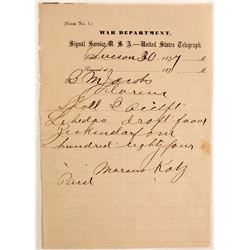 (Form No. 1.)
WAR DEPARTMENT,
Signal Service, U. S. A.—United States Telegraph
Tucson 30 187
187
B M Jacobs
Florence
Shall I accept
draft favor
one
hundred eighty four
Marcus Katz
Paid